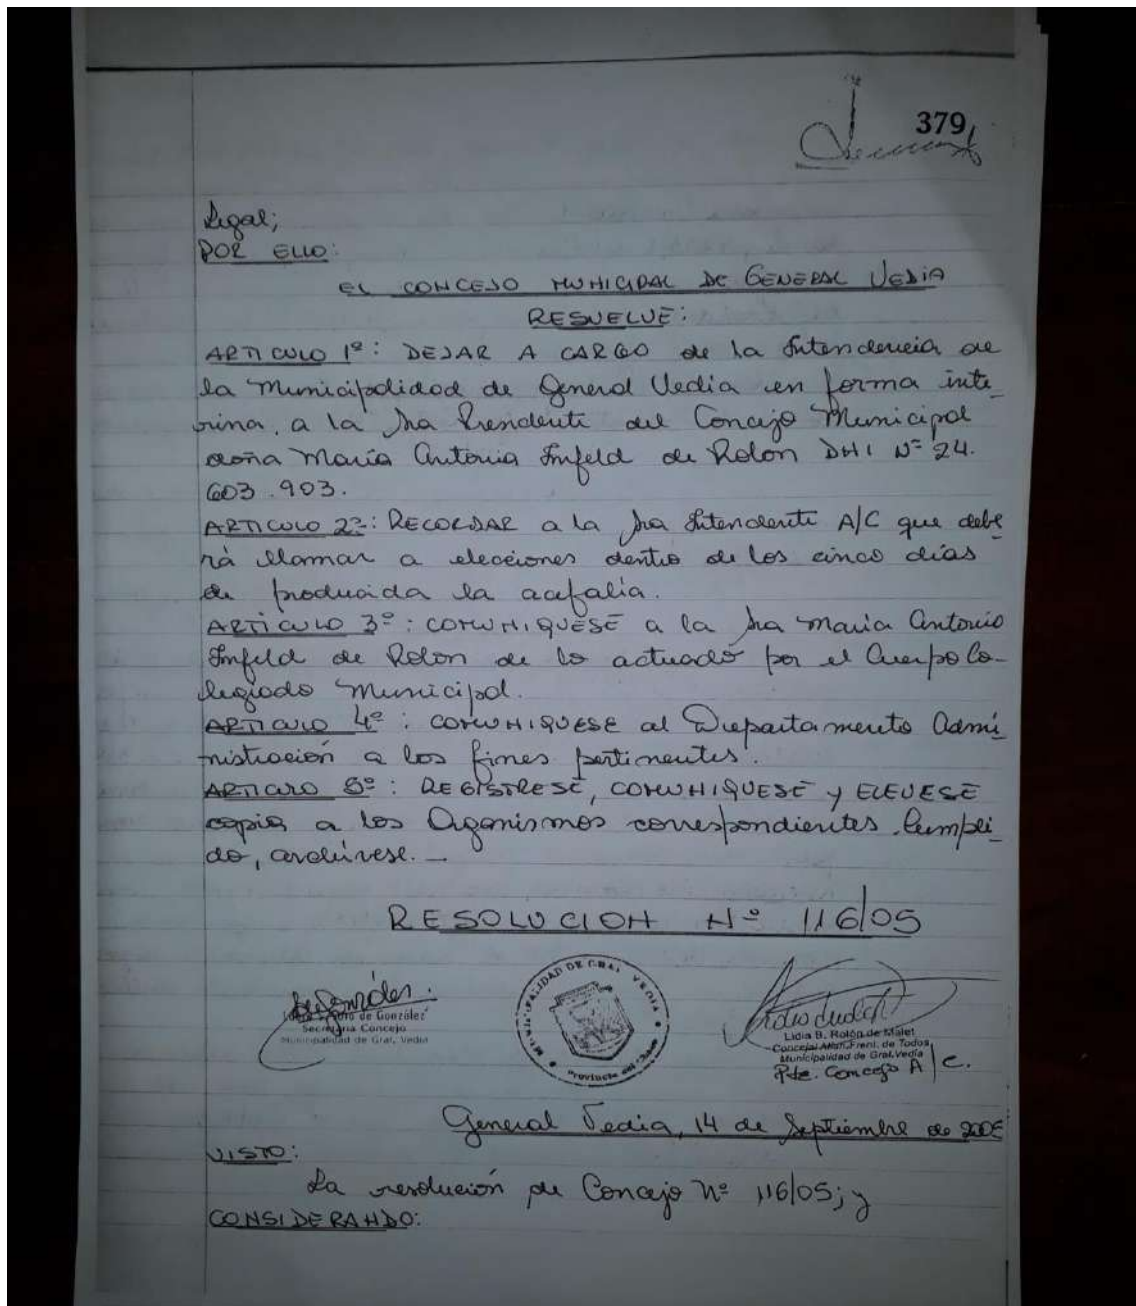 379
Legal;
POR ELLO:
EL CONCEJO MUNICIPAL DE GENERAL VEDIA
RESUELVE:
ARTICULO 1º: DEJAR A CARGO de la Intendencia de
la Municipalidad de General Vedia en forma inte-
rina, a la Sra Presidente del Concejo Municipal
doña María Antonia Infeld de Rolon DNI Nº 24.
603.903.
ARTICULO 2º: RECORDAR a la Sra Intendente A/C que debe-
rá llamar a elecciones dentro de los cinco días
de producida la acefalía.
ARTICULO 3º: COMUNIQUESE a la Sra María Antonia
Infeld de Rolon de lo actuado por el Cuerpo Co-
legiado Municipal.
ARTICULO 4º: COMUNIQUESE al Departamento Admi-
nistración a los fines pertinentes.
ARTICULO 5º: REGISTRESE, COMUNIQUESE y ELEVESE
copia a los Organismos correspondientes. Cumpli-
do, archívese.-
RESOLUCION Nº 116/05
de González
Secretaria Concejo
Municipalidad de Gral. Vedia
MUNICIPALIDAD DE GRAL. VEDIA
Provincia del Chaco
Lidia B. Rolón de Malet
Concejal Frent. de Todos
Municipalidad de Gral. Vedia
Pte. Concejo A/C.
General Vedia, 14 de Septiembre de 2005
VISTO:
La resolución de Concejo Nº 116/05; y
CONSIDERANDO: